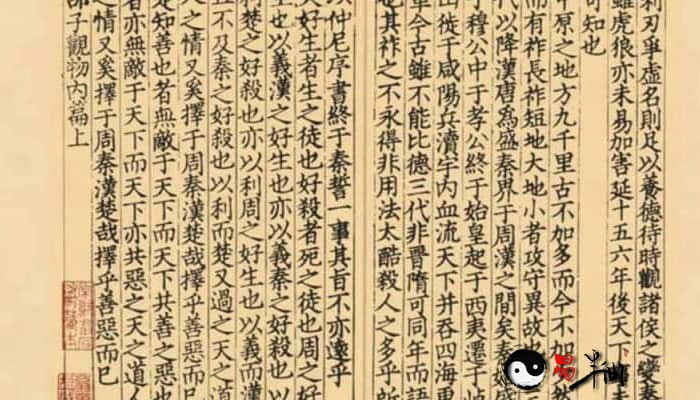 利刃爭虛名則足以養德待時觀諸侯之變秦
雖虎狼亦未易加害延十五六年後天下未
可知也
中原之地方九千里古不加多而今不加然
而有祚長祚短地大地小者攻守異故也三
代以降漢唐為盛秦界于周漢之間矣秦盛
于穆公中于孝公終于始皇起于西夷遷于岐
山徙于咸陽兵瀆宇內血流天下并吞四海更
革今古雖不能比德三代非晉隋可同年而語
也其祚之不永得非用法太酷殺人之多乎所
以仲尼序書終于秦誓一事其旨不亦遠乎
夫好生者生之徒也好殺者死之徒也周之好
生也以義漢之好生也亦以義秦之好殺也以
利楚之好殺也亦以利周之好生也以義而漢
且不及秦之好殺也以利而楚又過之天之道
人之情又奚擇于周秦漢楚哉擇乎善惡而已
是知善也者無敵于天下而天下共善之惡也
者亦無敵于天下而天下亦共惡之天之道人
之情又奚擇于周秦漢楚哉擇乎善惡而已
邵子觀物內篇上
易